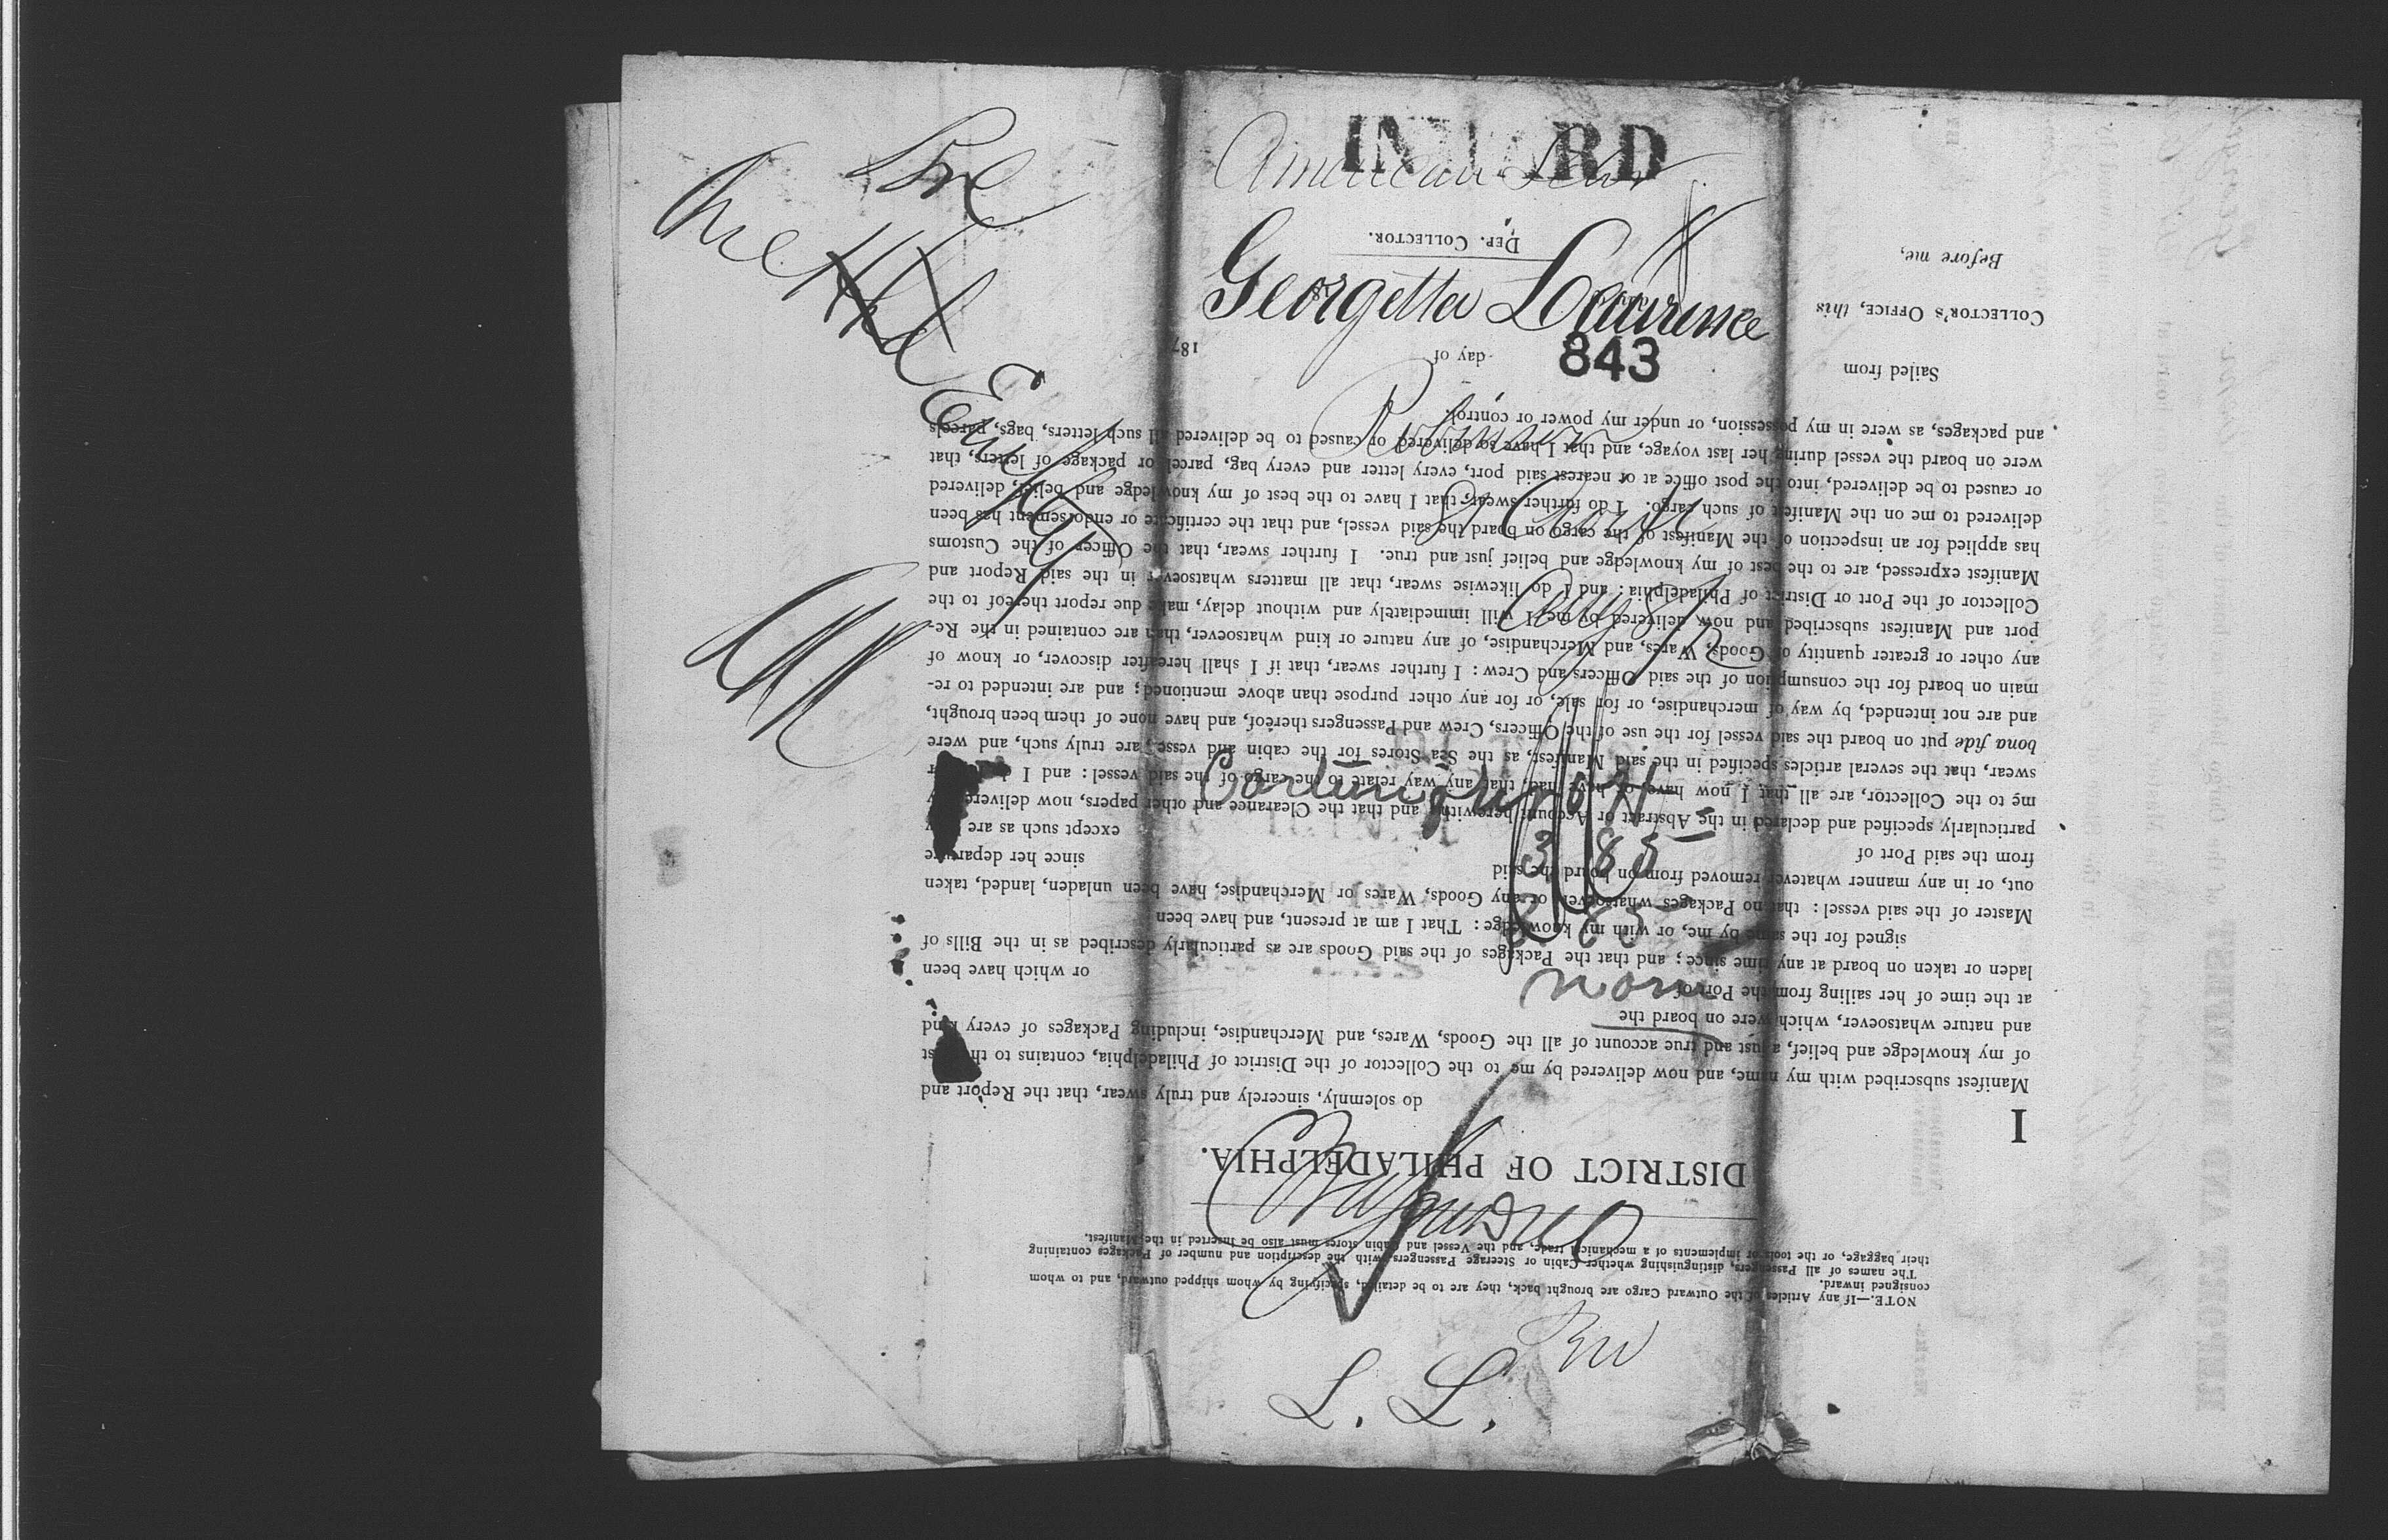 INWARD
American Schr
Georgetta Lawrence
843
Robinson
St Croix
Aug 8/78
3 85
3 85
none
L. L.
NOTE.—If any Articles of the Outward Cargo are brought back, they are to be detailed, specifying by whom shipped outward, and to whom
consigned inward.
The names of all Passengers, distinguishing whether Cabin or Steerage Passengers, with the description and number of Packages containing
their baggage, or the tools or implements of a mechanical trade, and the Vessel and Cabin stores must also be inserted in the Manifest.
DISTRICT OF PHILADELPHIA.
I
do solemnly, sincerely and truly swear, that the Report and
Manifest subscribed with my name, and now delivered by me to the Collector of the District of Philadelphia, contains to the best
of my knowledge and belief, a just and true account of all the Goods, Wares, and Merchandise, including Packages of every kind
and nature whatsoever, which were on board the
at the time of her sailing from the Port of
or which have been
laden or taken on board at any time since; and that the Packages of the said Goods are as particularly described as in the Bills of
signed for the same by me, or with my knowledge: That I am at present, and have been
Master of the said vessel: that no Packages whatsoever, or any Goods, Wares or Merchandise, have been unladen, landed, taken
out, or in any manner whatever removed from on board the said
from the said Port of since her departure
except such as are
particularly specified and declared in the Abstract or Account herewith, and that the Clearance and other papers, now delivered by
me to the Collector, are all that I now have or have had, that any way relate to the cargo of the said vessel: and I do
swear, that the several articles specified in the said Manifest, as the Sea Stores for the cabin and vessel, are truly such, and were
bona fide put on board the said vessel for the use of the Officers, Crew and Passengers thereof, and have none of them been brought,
and are not intended, by way of merchandise, or for sale, or for any other purpose than above mentioned; and are intended to re-
main on board for the consumption of the said Officers and Crew: I further swear, that if I shall hereafter discover, or know of
any other or greater quantity of Goods, Wares, and Merchandise, of any nature or kind whatsoever, than are contained in the Re-
port and Manifest subscribed and now delivered by me, I will immediately and without delay, make due report thereof to the
Collector of the Port or District of Philadelphia: and I do likewise swear, that all matters whatsoever in the said Report and
Manifest expressed, are to the best of my knowledge and belief just and true. I further swear, that the Officer of the Customs
has applied for an inspection of the Manifest of the cargo on board the said vessel, and that the certificate or endorsement has been
delivered to me on the Manifest of such cargo. I do further swear, that I have to the best of my knowledge and belief, delivered
or caused to be delivered, into the post office at or nearest said port, every letter and every bag, parcel or package of letters, that
were on board the vessel during her last voyage, and that I have so delivered or caused to be delivered all such letters, bags, parcels
and packages, as were in my possession, or under my power or control.
Sailed from
COLLECTOR'S OFFICE, this
day of
187
Before me,
DEP. COLLECTOR.